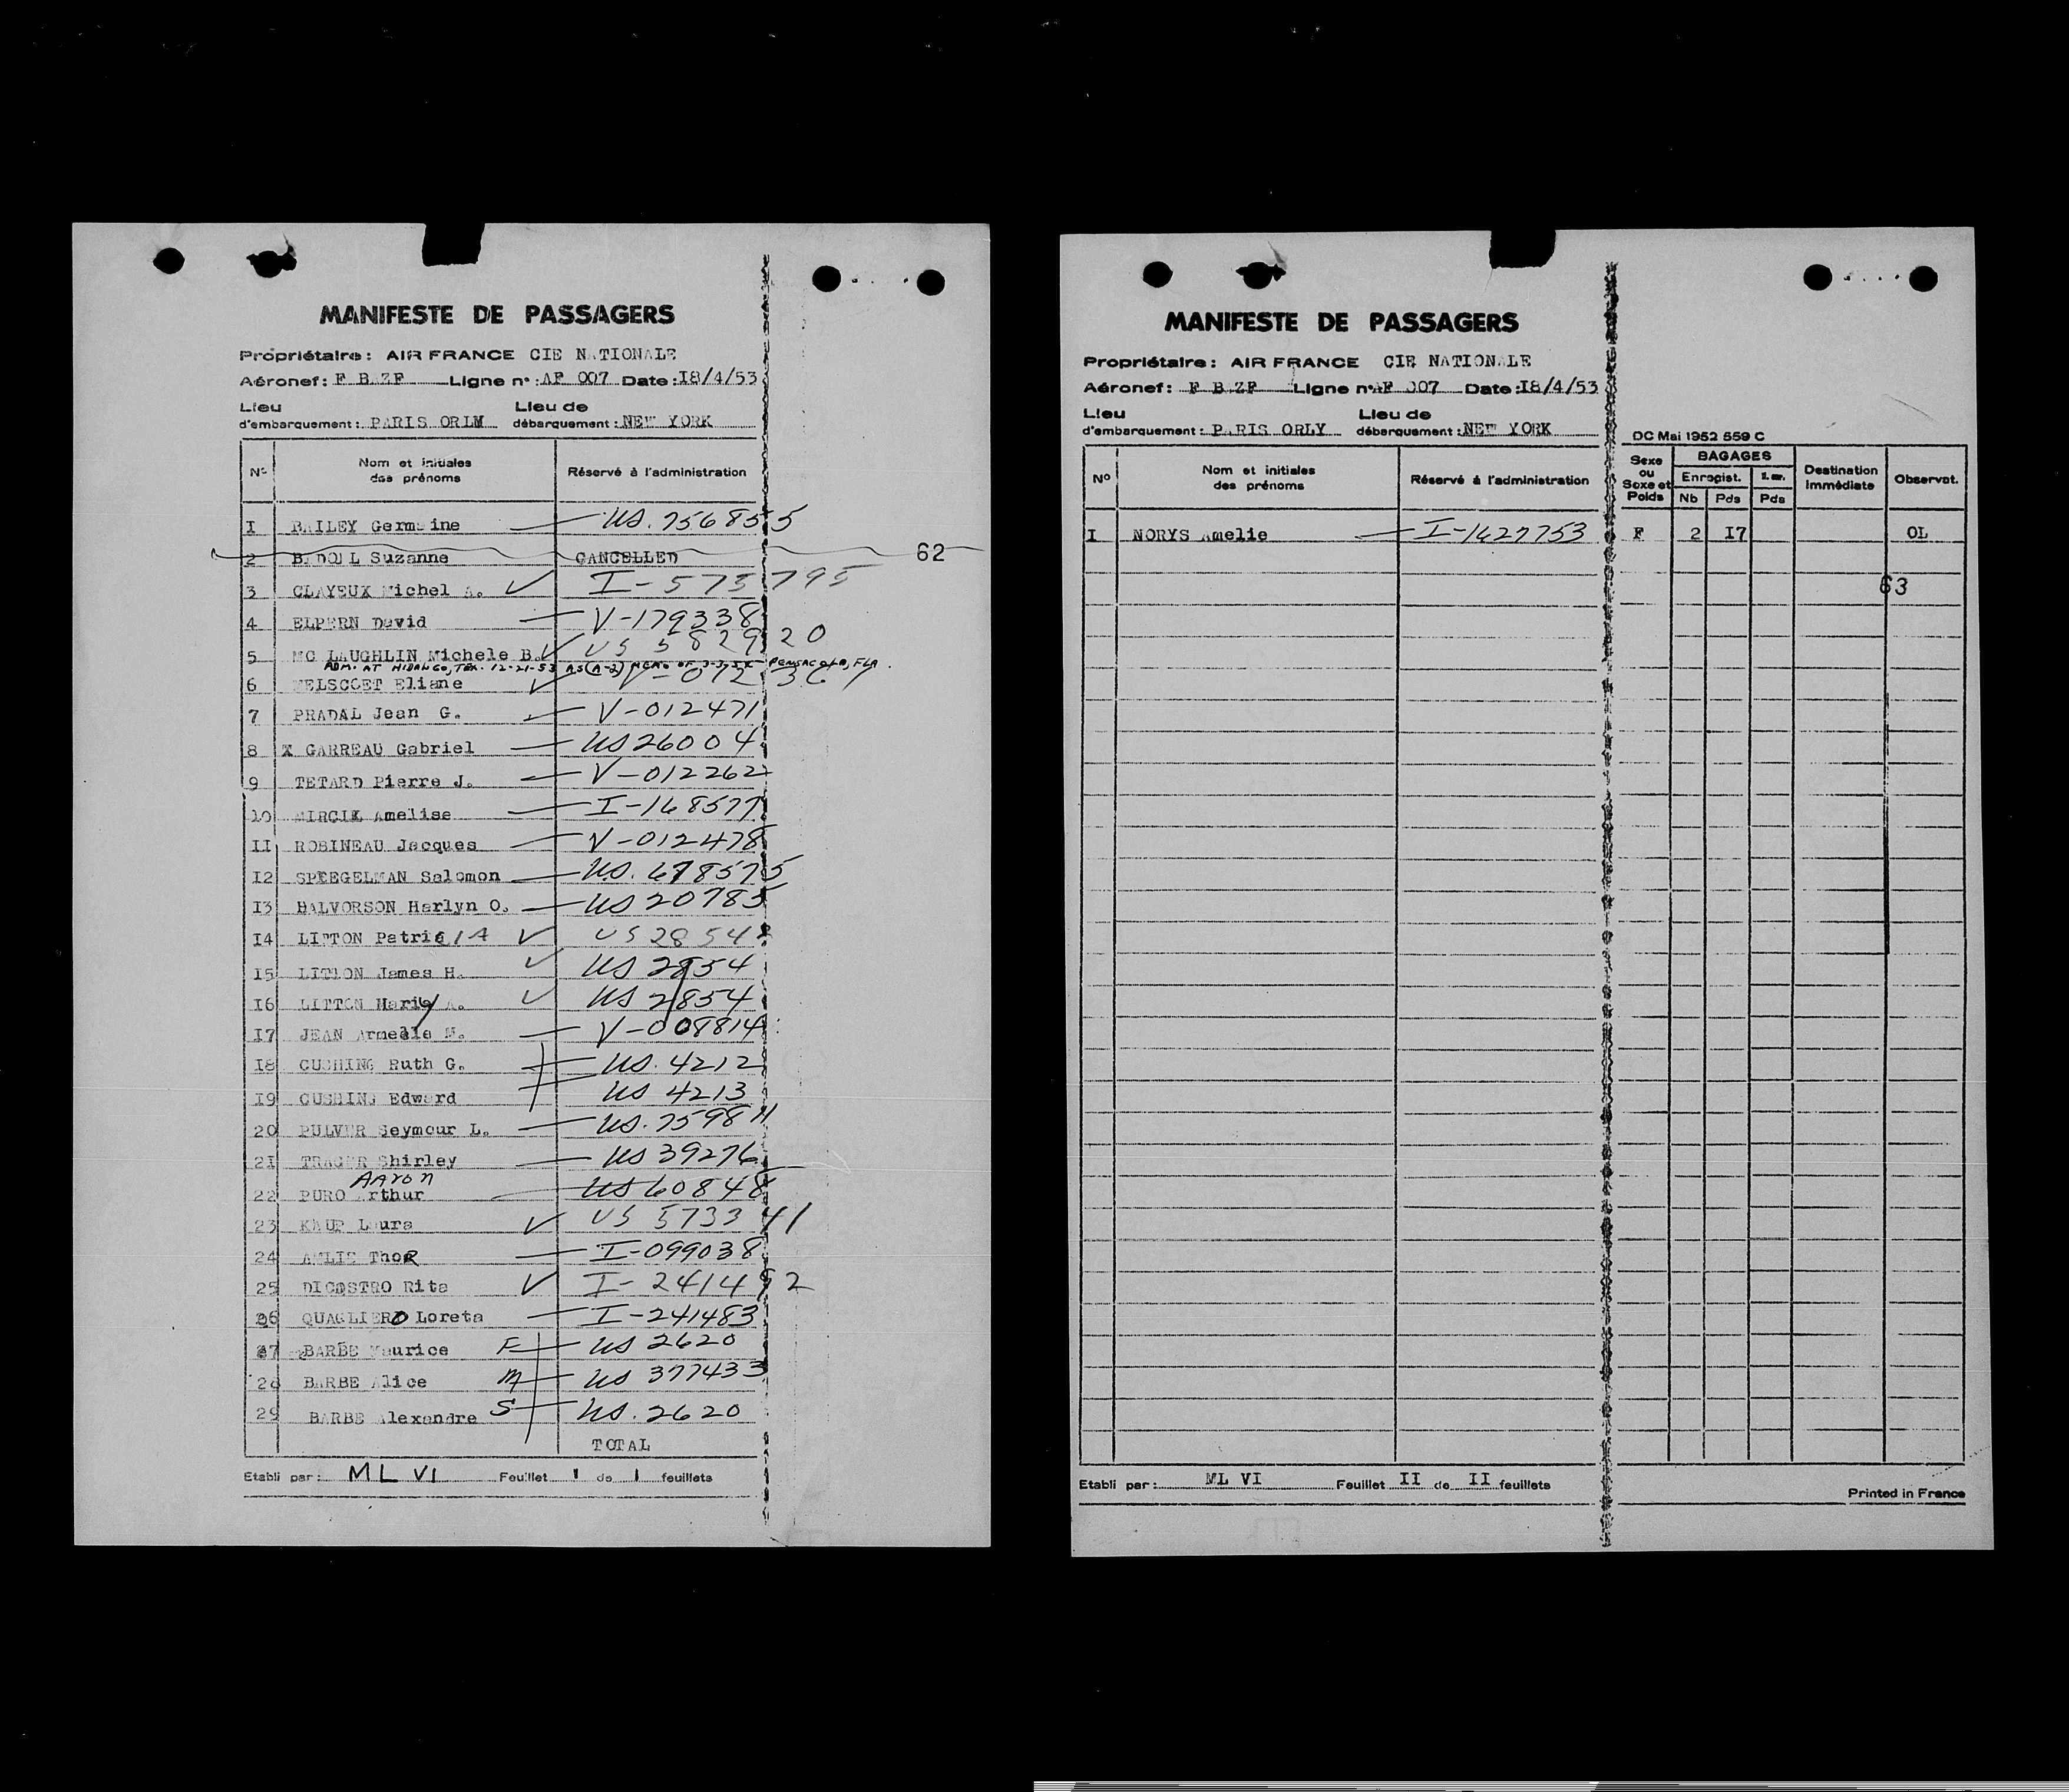 MANIFESTE DE PASSAGERS
Propriétaire : AIR FRANCE CIE NATIONALE
Aéronef : F BAZF Ligne n° : AF 007 Date : I8/4/53
Lieu d'embarquement : PARIS ORLM Lieu de débarquement : NEW YORK
N° Nom et initiales des prénoms Réservé à l'administration
I BAILEY Germaine US. 756855
2 Suzanne CANCELLED 62
3 CLAYEUX Michel A. I-573795
4 ELPERN David V-179338
5 MC LAUGHLIN Michele B. US 582920
ADM. AT HIDALGO, TEX. 12-21-53 AS (A-2) PENSACOLA, FLA.
6 Eliane V-012367
7 PRADAL Jean G. V-012471
8 X GARREAU Gabriel US 26004
9 TETARD Pierre J. V-012262
10 MIRCIK Amelise I-168577
II ROBINEAU Jacques V-012478
I2 SPEEGELMAN Salomon US. 678575
I3 HALVORSON Harlyn O. US 20785
I4 LITTON PatriciA US 2854
I5 LITTON James H. US 2854
I6 LITTON Mary A. US 2854
I7 JEAN Armelle M. V-008814
I8 CUSHING Ruth G. US. 4212
I9 CUSHING Edward US 4213
20 PULVER Seymour L. US. 759811
2I TRAGER Shirley US 39276
Aaron
22 PURO Arthur US 60848
23 KAUP Laura US 573341
24 AMLIE ThoR I-099038
25 DICOSTRO Rita I-241492
26 QUAGLIERO Loreta I-241483
27 BARBE Maurice F US 2620
28 BARBE Alice M US 377433
29 BARBE Alexandre S US. 2620
TOTAL
Etabli par : ML VI Feuillet 1 de 1 feuillets
MANIFESTE DE PASSAGERS
Propriétaire : AIR FRANCE CIE NATIONALE
Aéronef : F BAZF Ligne n° AF 007 Date : I8/4/53
Lieu d'embarquement : PARIS ORLY Lieu de débarquement : NEW YORK
DC Mai 1952 559 C
N° Nom et initiales des prénoms Réservé à l'administration Sexe ou Sexe et Poids BAGAGES Enregist. Nb Pds Pds Destination Immédiate Observat.
I NORYS Amelie I-1627753 F 2 I7 OL
63
Etabli par : ML VI Feuillet II de II feuillets
Printed in France